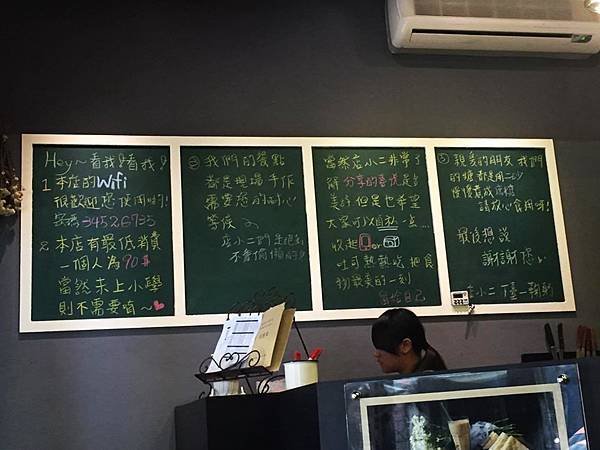 Hey~看我!看我!
1. 本店的Wifi
很歡迎您使用喲!
密碼34526735
2. 本店有最低消費
一個人為90$
當然未上小學
則不需要唷~
③ 我們的餐點
都是現場手作
需要您的耐心
等候
店小二們是絕對
不會偷懶的
當然店小二非常了
解分享的喜悅是多
美好但是也希望
大家可以自私一点…
收起
or
吐司熱熱吃 把食
物最美的一刻
留給自己
⑤ 親愛的朋友 我們
的糖都是用二砂
慢慢熬成
請放心食用呀!
最後想說
謝謝您
店小二 僅一鞠躬